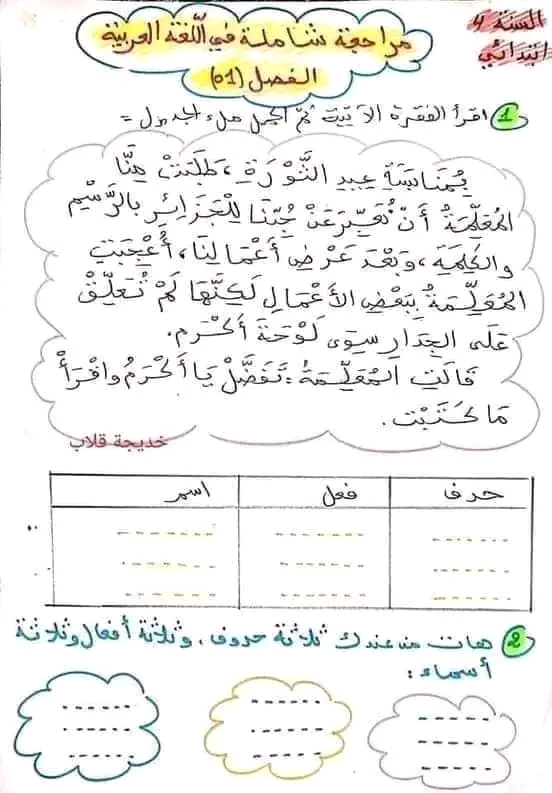 السنة 4
ابتدائي
مراجعة شاملة في اللغة العربية
الفصل (01)
1 اقرأ الفقرة الآتية ثم اكمل ملء الجدول =
بِمُنَاسَبَةِ عِيدِ الثَّوْرَةِ، طَلَبَتْ مِنَّا
المُعَلِّمَةُ أَنْ نُعَبِّرَ عَنْ حُبِّنَا لِلْجَزَائِرِ بِالرَّسْمِ
والكَلِمَةِ، وَبَعْدَ عَرْضِ أَعْمَالِنَا، أُعْجِبَتِ
المُعَلِّمَةُ بِبَعْضِ الأَعْمَالِ لَكِنَّهَا لَمْ تُعَلِّقْ
عَلَى الجِدَارِ سِوَى لَوْحَةَ أَكْرَم.
قَالَتِ المُعَلِّمَةُ: تَفَضَّلْ يَا أَكْرَمُ وَاقْرَأْ
مَا كَتَبْتَ.
خديجة قلاب
حرف فعل اسم
2 هات من عندك ثلاثة حروف، وثلاثة أفعال وثلاثة
أسماء: